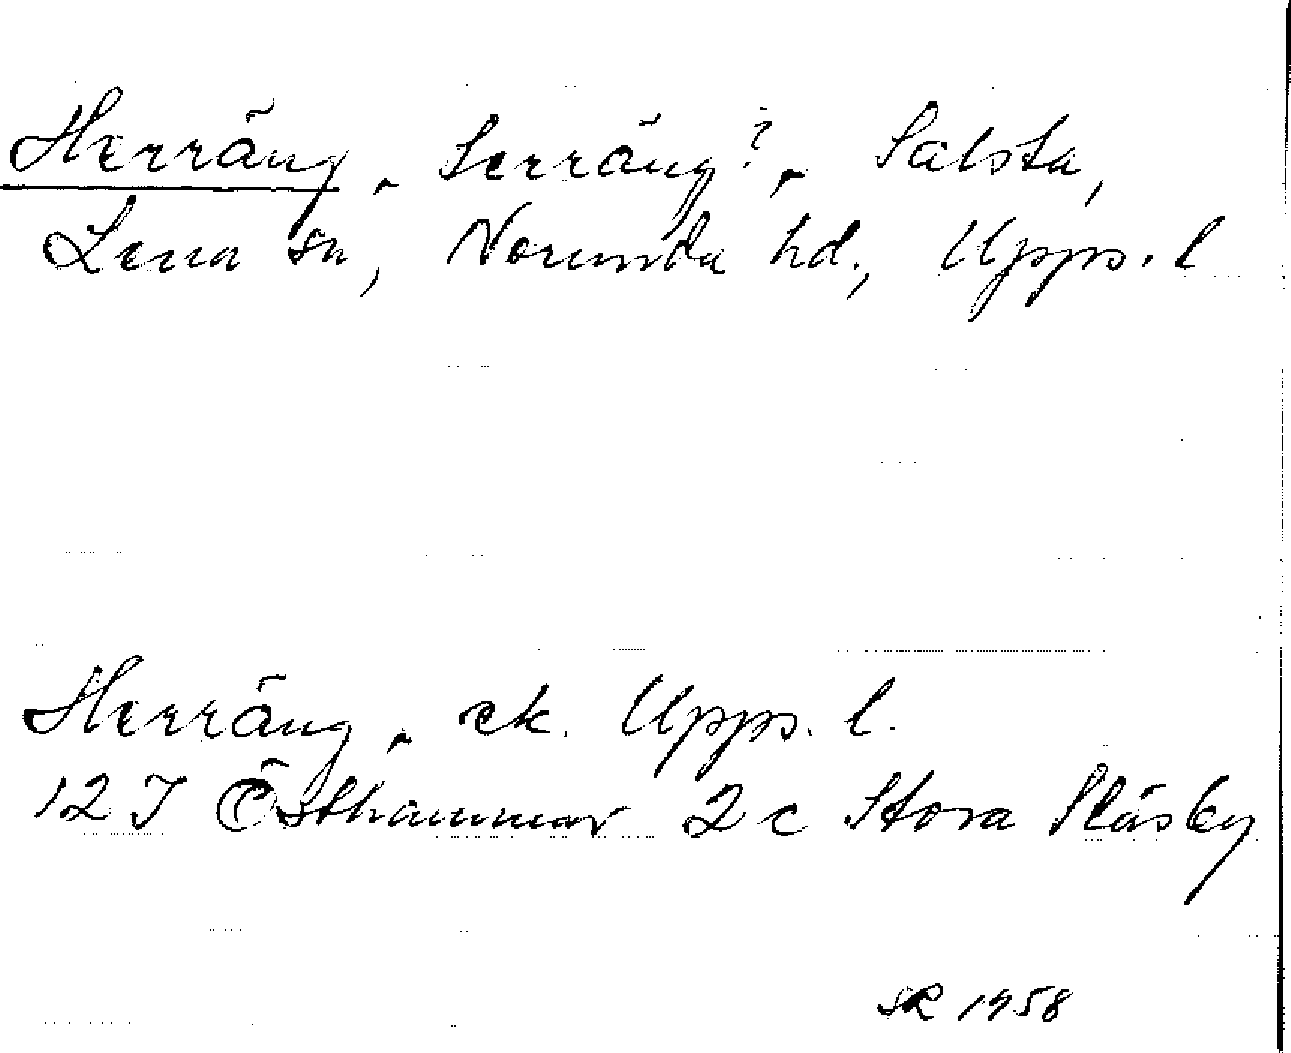 Herräng, Serräng?, Salsta,
Lena sn, Norunda hd., Upps. l
Herräng, ek. Upps. l.
12 I Östhammar 2 c Stora Släsby
SR 1958